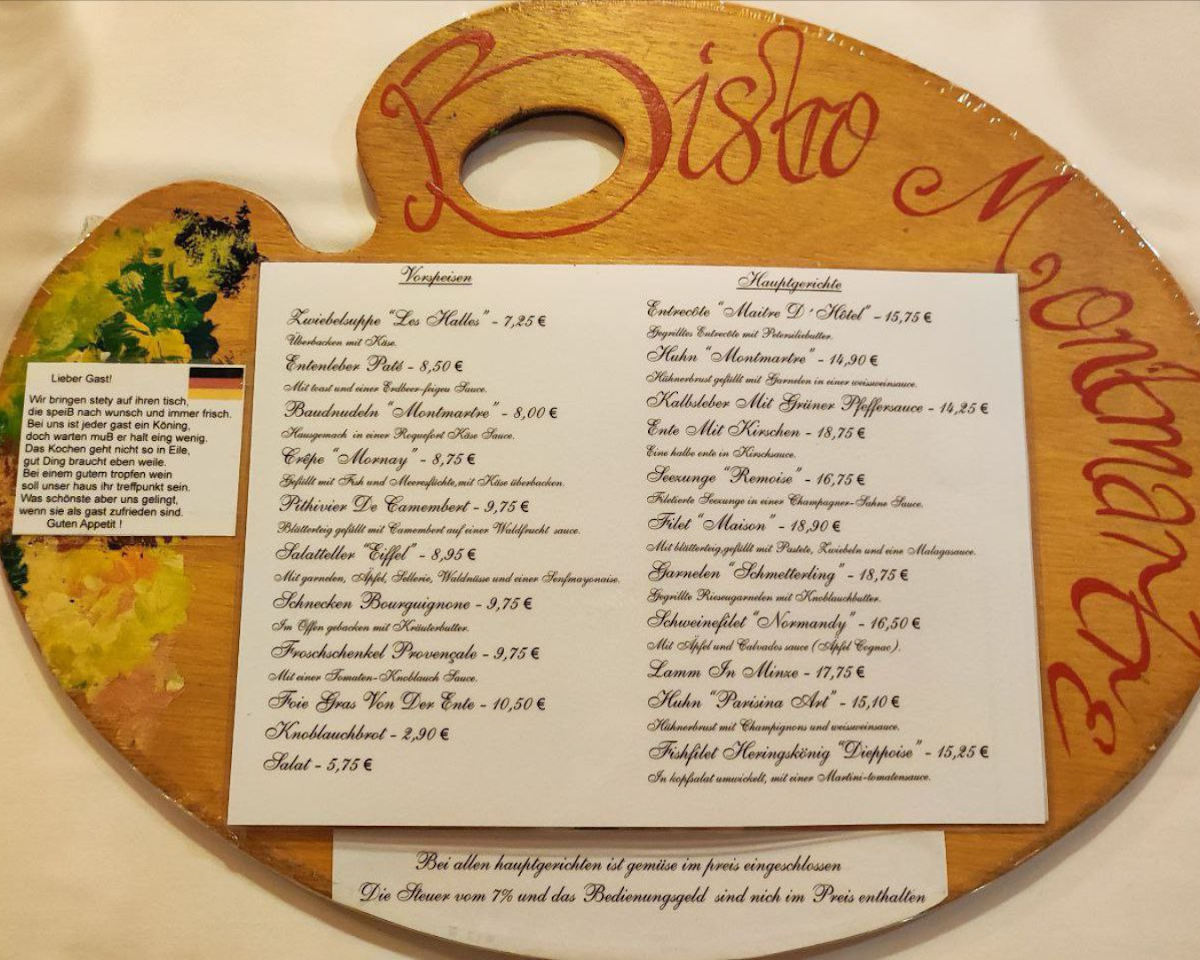 Bistro Montmartre
Lieber Gast!
Wir bringen stety auf ihren tisch,
die speiß nach wunsch und immer frisch.
Bei uns ist jeder gast ein Köning,
doch warten muß er halt eing wenig.
Das Kochen geht nicht so in Eile,
gut Ding braucht eben weile.
Bei einem gutem tropfen wein
soll unser haus ihr treffpunkt sein.
Was schönste aber uns gelingt,
wenn sie als gast zufrieden sind.
Guten Appetit !
Vorspeisen
Zwiebelsuppe "Les Halles" - 7,25 €
Überbacken mit Käse.
Entenleber Paté - 8,50 €
Mit toast und einer Erdbeer-feigen Sauce.
Baudnudeln "Montmartre" - 8,00 €
Hausgemach in einer Roquefort Käse Sauce.
Crêpe "Mornay" - 8,75 €
Gefüllt mit Fish und Meeresflüchte,mit Käse überbacken.
Pithivier De Camembert - 9,75 €
Blätterteig gefüllt mit Camembert auf einer Waldfrucht sauce.
Salatteller "Eiffel" - 8,95 €
Mit garnelen, Äpfel, Sellerie, Waldnüsse und einer Senfmayonaise.
Schnecken Bourguignone - 9,75 €
Im Offen gebacken mit Kräuterbutter.
Froschschenkel Provençale - 9,75 €
Mit einer Tomaten-Knoblauch Sauce.
Foie Gras Von Der Ente - 10,50 €
Knoblauchbrot - 2,90 €
Salat - 5,75 €
Hauptgerichte
Entrecôte "Maitre D ' Hôtel" - 15,75 €
Gegrilltes Entrecôte mit Petersiliebutter.
Huhn "Montmartre" - 14,90 €
Hühnerbrust gefüllt mit Garnelen in einer weissweinsauce.
Kalbsleber Mit Grüner Pfeffersauce - 14,25 €
Ente Mit Kirschen - 18,75 €
Eine halbe ente in Kirschsauce.
Seezunge "Remoise" - 16,75 €
Filetierte Seezunge in einer Champagner-Sahne Sauce.
Filet "Maison" - 18,90 €
Mit blätterteig,gefüllt mit Pastete, Zwiebeln und eine Malagasauce.
Garnelen "Schmetterling" - 18,75 €
Gegrillte Riesengarnelen mit Knoblauchbutter.
Schweinefilet "Normandy" - 16,50 €
Mit Äpfel und Calvados sauce (Äpfel Cognac).
Lamm In Minze - 17,75 €
Huhn "Parisina Art" - 15,10 €
Hühnerbrust mit Champignons und weissweinsauce.
Fishfilet Heringskönig "Dieppoise" - 15,25 €
In kopfsalat umwickelt, mit einer Martini-tomatensauce.
Bei allen hauptgerichten ist gemüse im preis eingeschlossen
Die Steuer vom 7% und das Bedienungsgeld sind nich im Preis enthalten